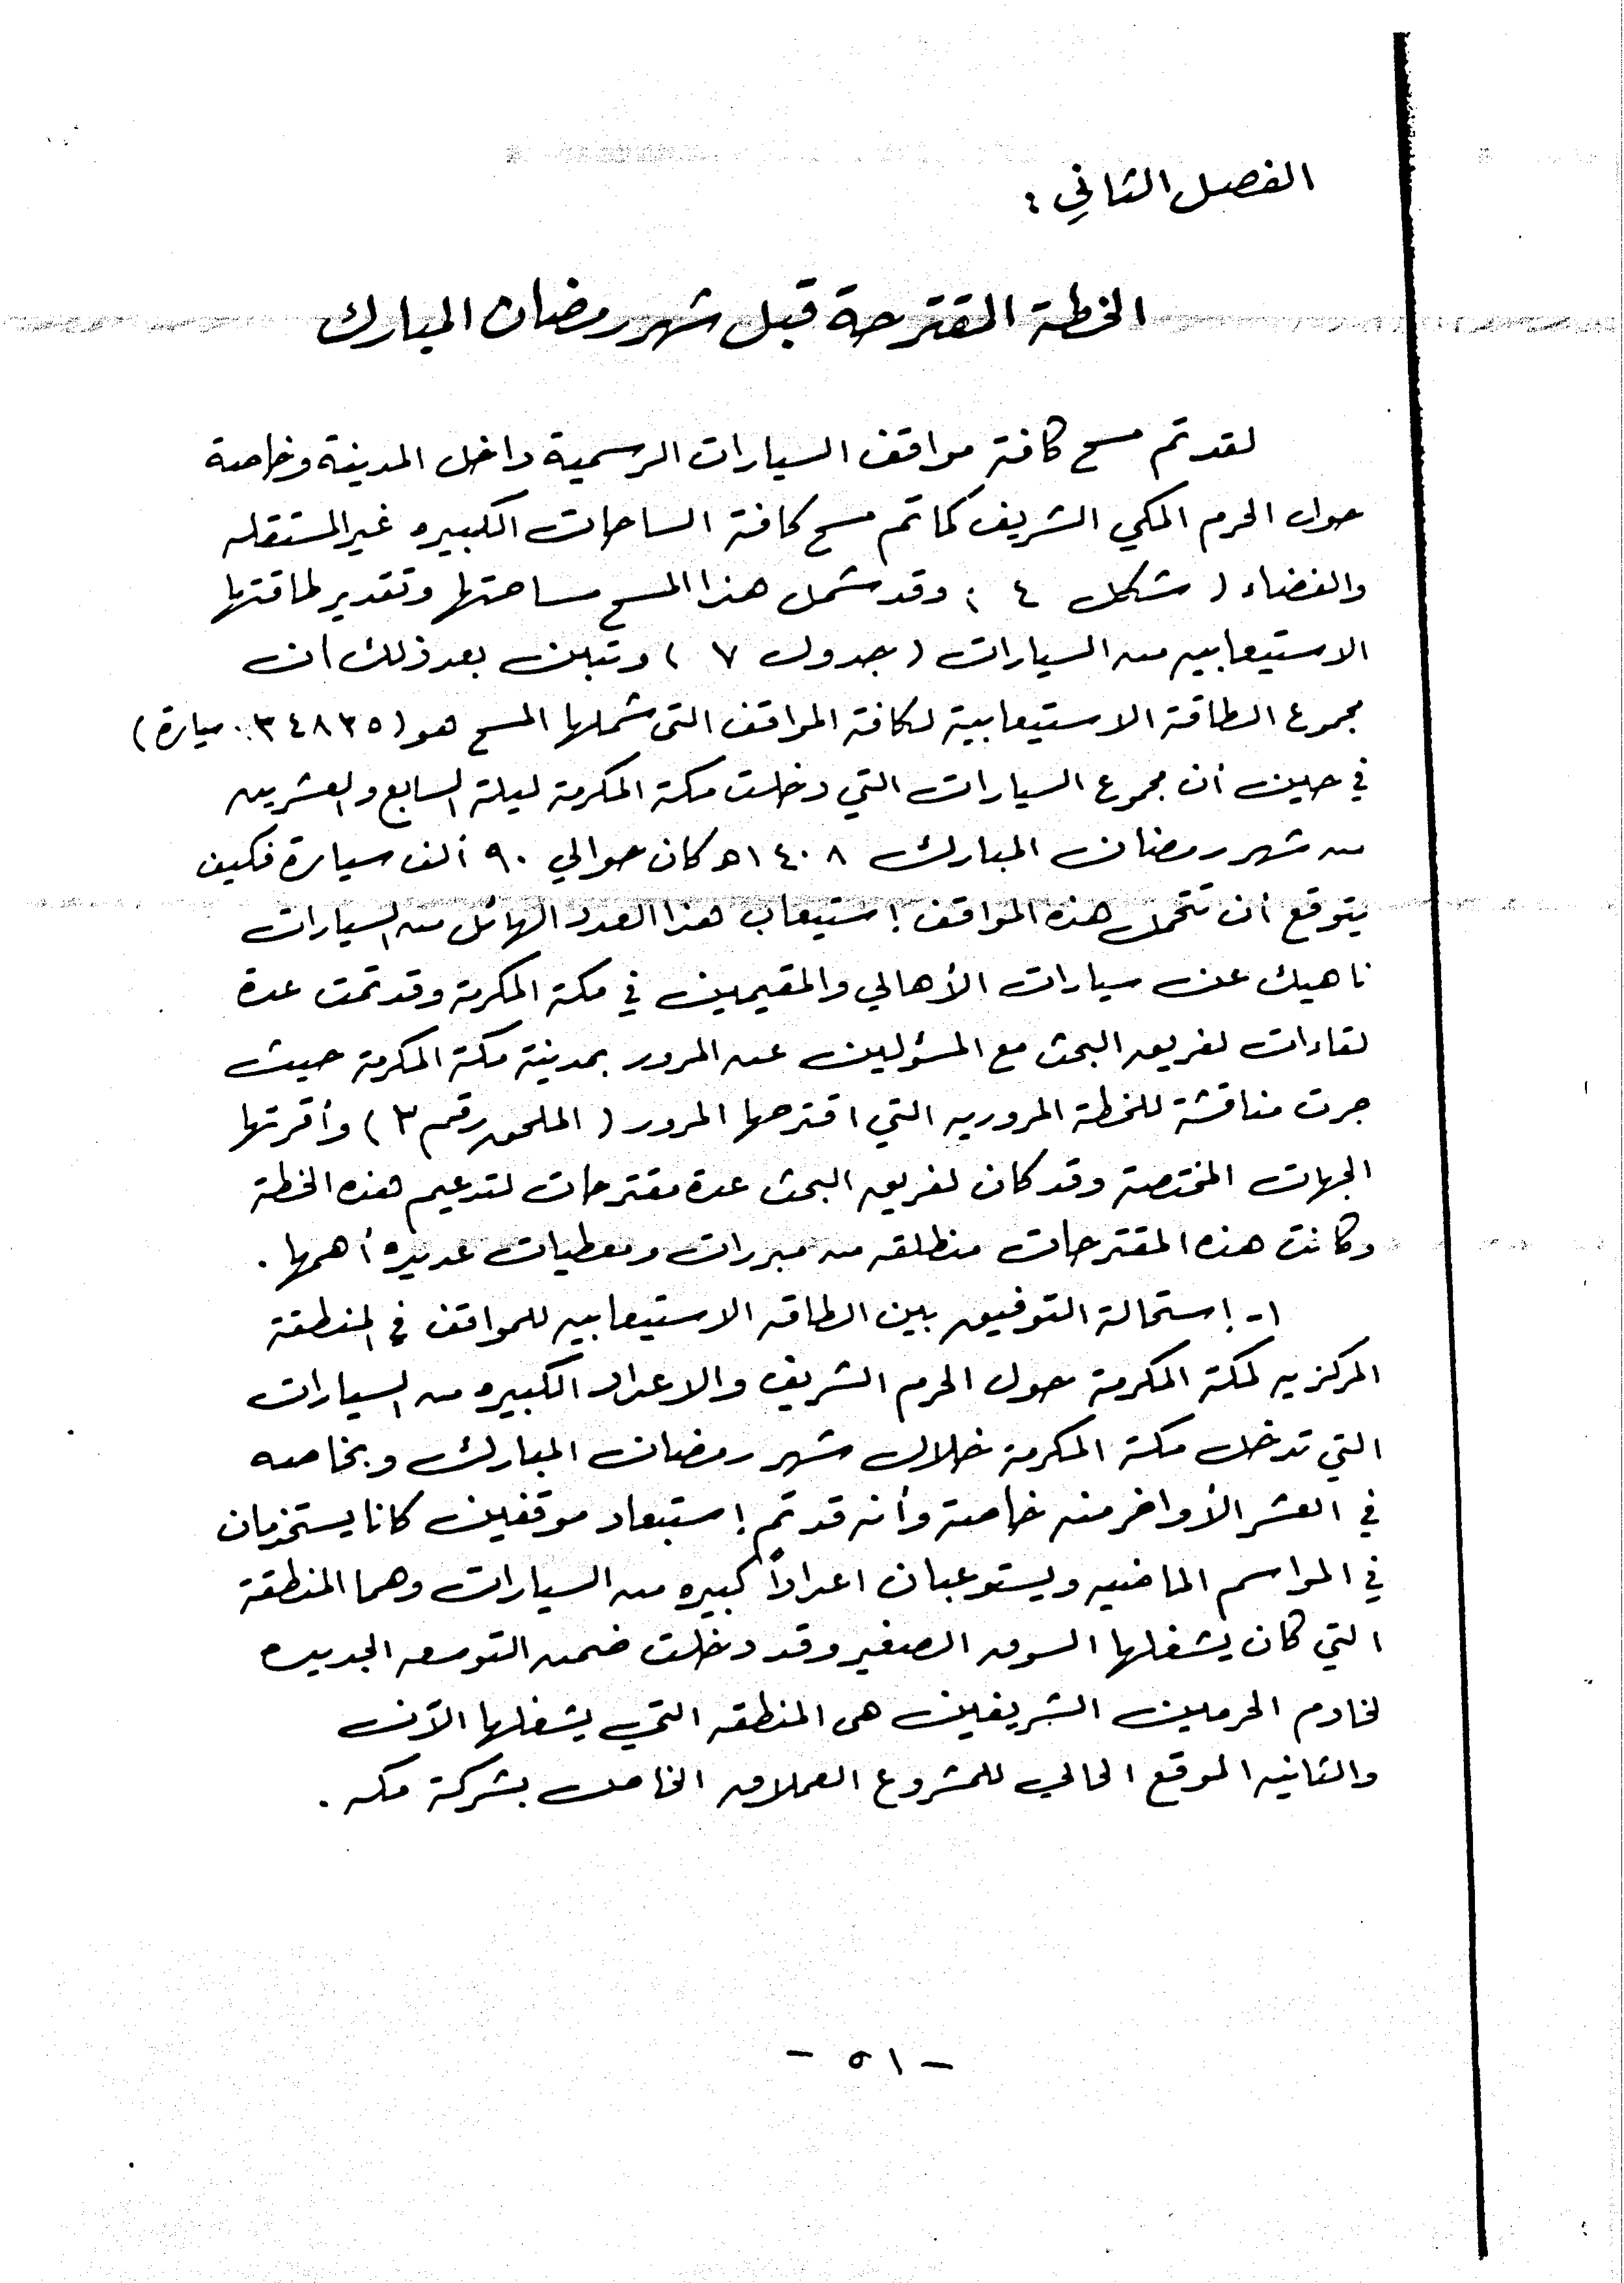 الفصل الثاني :
الخطة المقترحة قبل شهر رمضان المبارك
لقد تم مسح كافة مواقف السيارات الرسمية داخل المدينة وخاصة
حول الحرم المكي الشريف كما تم مسح كافة الساحات الكبيره غير المستغله
والفضاء ( شكل ٤ ) وقد شمل هذا المسح مساحتها وتقدير طاقتها
الاستيعابيه من السيارات ( جدول ٧ ) وتبين بعد ذلك ان
مجموع الطاقة الاستيعابية لكافة المواقف التى شملها المسح هو ( ٣٤٨٣٥ سيارة )
في حين أن مجموع السيارات التي دخلت مكة المكرمة ليلة السابع والعشرين
من شهر رمضان المبارك ١٤٠٨ هـ كان حوالي ٩٠ ألف سيارة فكيف
يتوقع أن تتحمل هذه المواقف إستيعاب هذا العدد الهائل من السيارات
ناهيك عن سيارات الأهالي والمقيمين في مكة المكرمة وقد تمت عدة
لقاءات لفريق البحث مع المسؤولين عن المرور بمدينة مكة المكرمة حيث
جرت مناقشة للخطة المروريه التي اقترحها المرور ( الملحق رقم ٣ ) وأقرتها
الجهات المختصة وقد كان لفريق البحث عدة مقترحات لتدعيم هذه الخطة
وكانت هذه المقترحات منطلقه من مبررات ومعطيات عديده أهمها .
١- إستحالة التوفيق بين الطاقه الاستيعابيه للمواقف في المنطقة
المركزيه لمكة المكرمة حول الحرم الشريف والاعداد الكبيره من السيارات
التي تدخل مكة المكرمة خلال شهر رمضان المبارك وبخاصه
في العشر الأواخر منه خاصة وأنه قد تم إستبعاد موقفين كانا يستخدمان
في المواسم الماضيه ويستوعبان اعداداً كبيره من السيارات وهما المنطقة
التي كان يشغلها السوق الصغير وقد دخلت ضمن التوسعه الجديده
لخادم الحرمين الشريفين هى المنطقه التي يشغلها الآن
والثانيه الموقع الحالي للمشروع العملاق الخاص بشركة مكه .
- ٥١ -